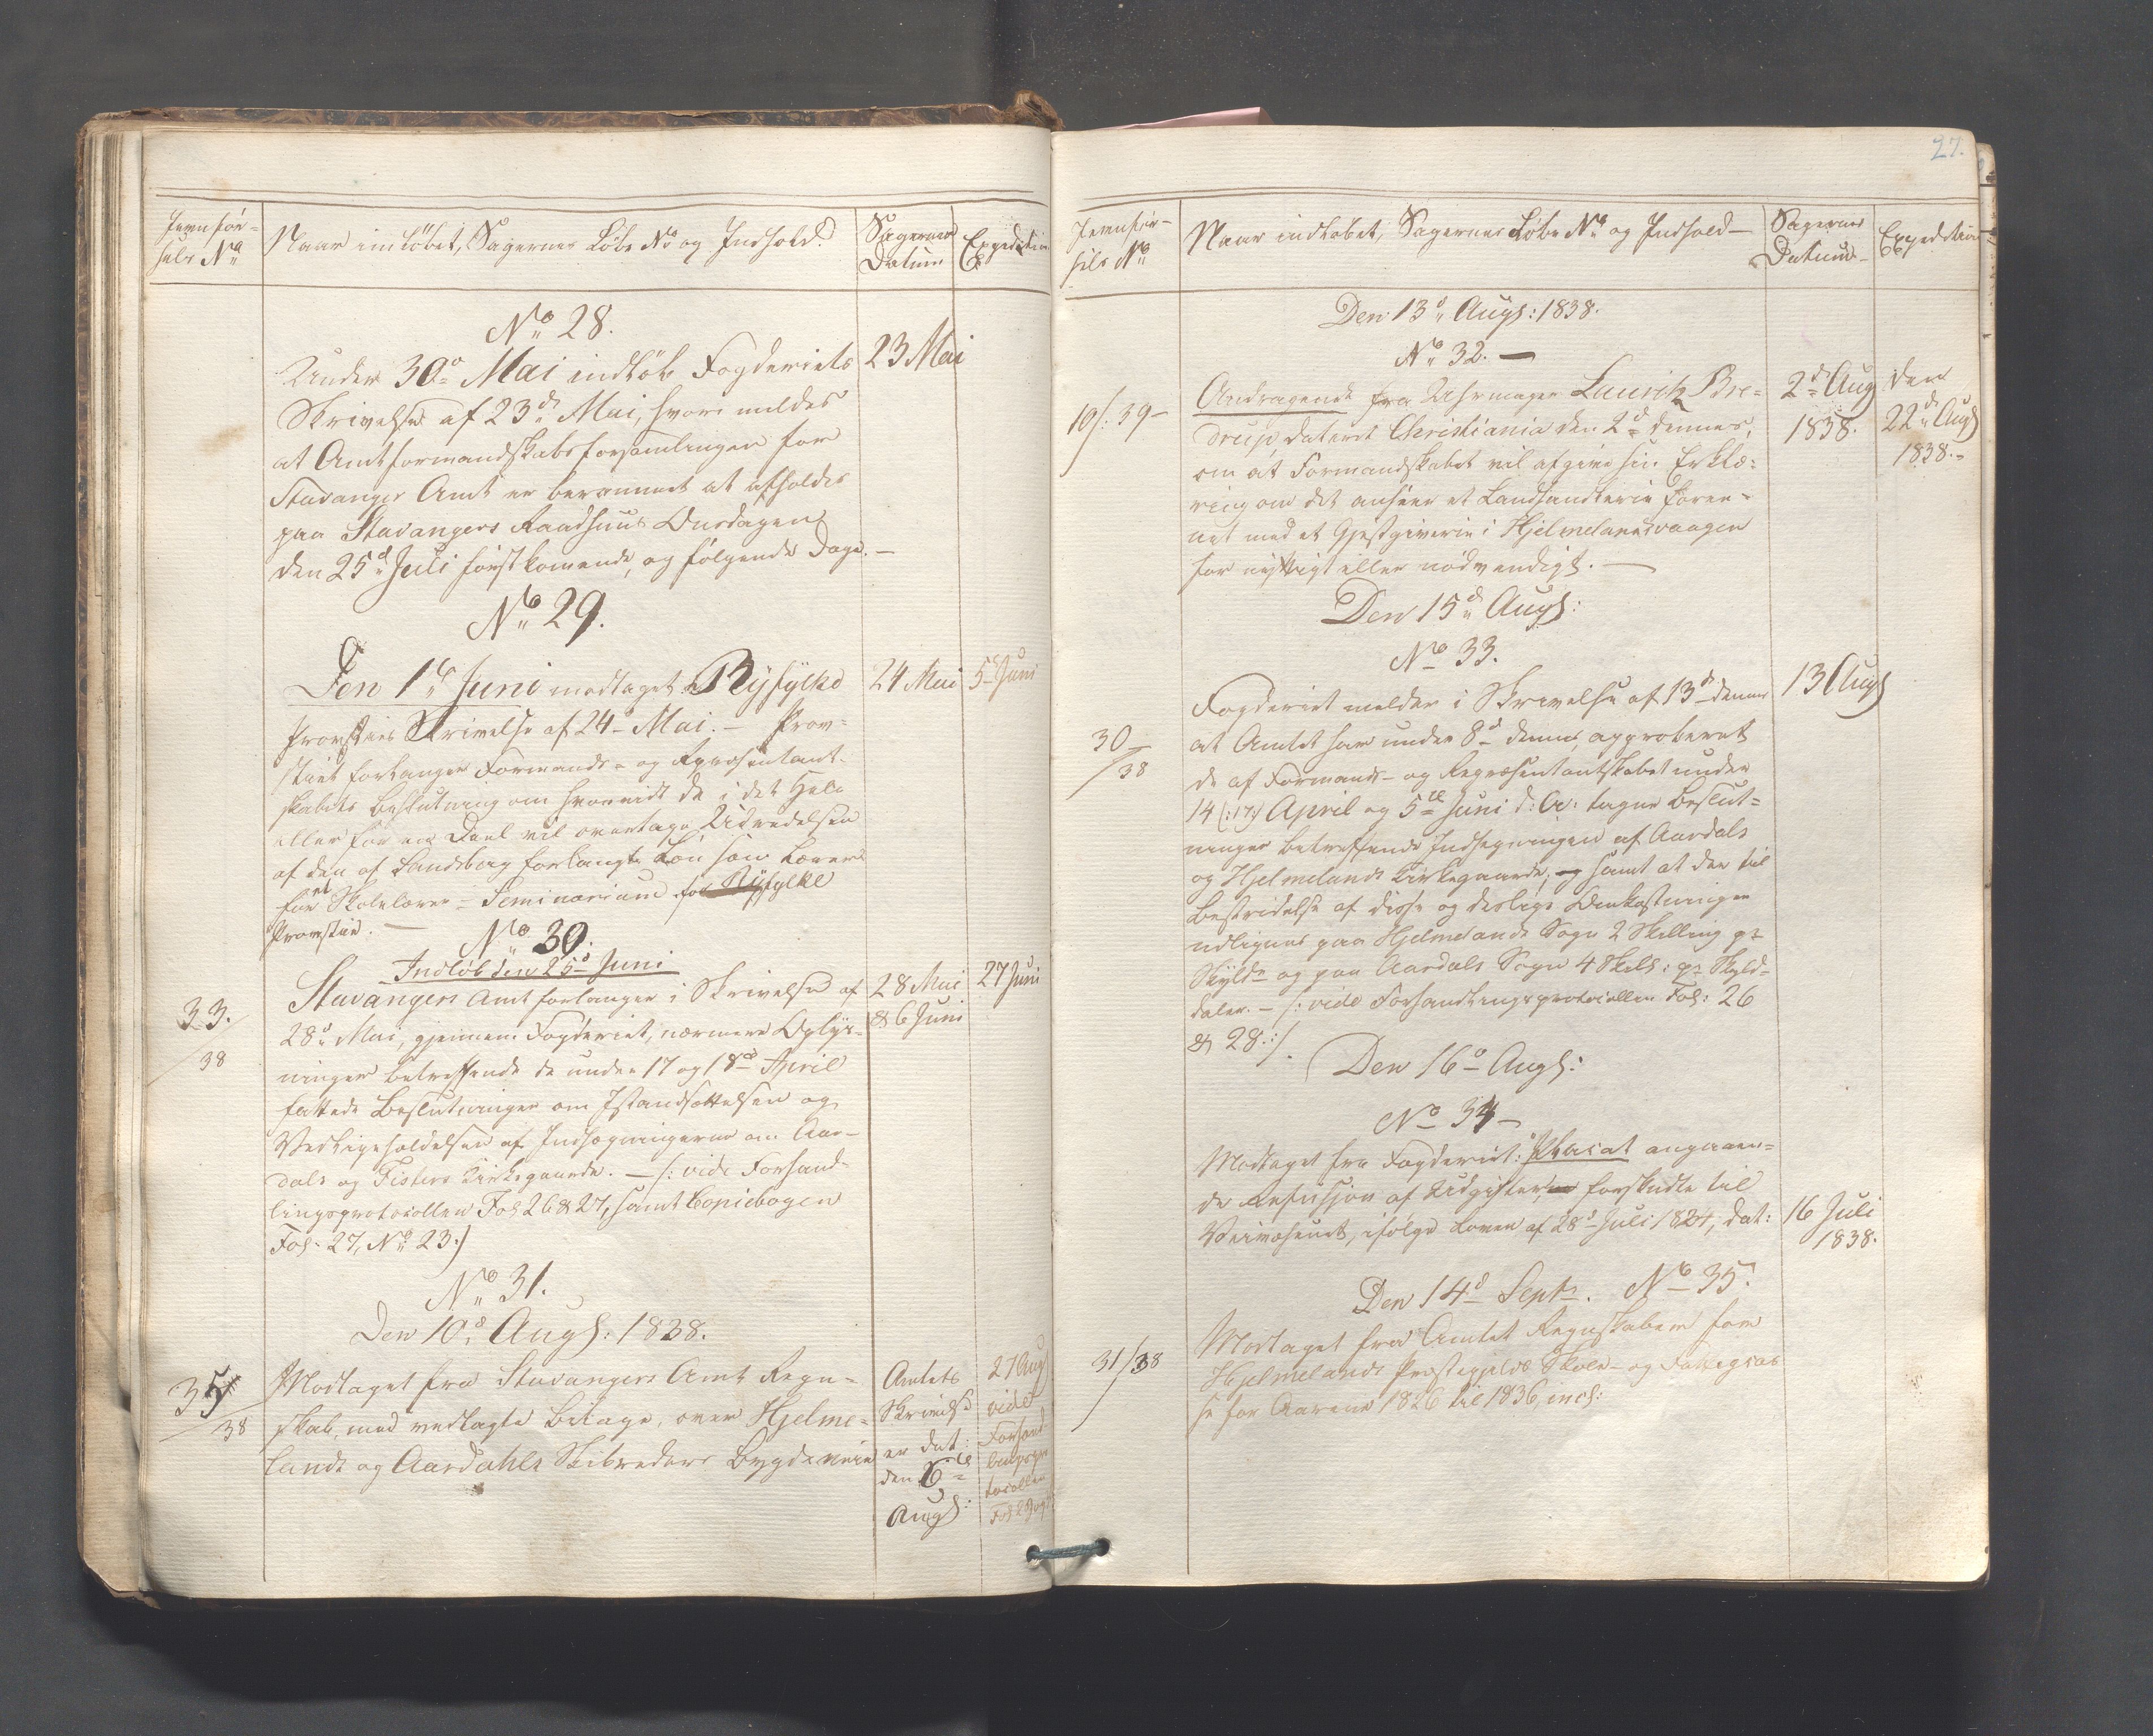 Jevnför-
sels No
Naar indlöbet, Sagernes Löbe No og Indhold.
Sagernes
Datum
Expedition
No 28.
Under 30d Mai indlöb Fogderiets
23 Mai
Skrivelse af 23d Mai, hvori meldes
at Amtformandskabsforsamlingen for
Stavanger Amt er berammet at afholdes
paa Stavangers Raadhuus Onsdagen
den 25d Juli förstkomende, og fölgende Dage.—
No 29.
Den 1ste Juni modtaget Ryfylke
24 Mai
5 Juni
Provsties Skrivelse af 24 Mai. — Prov=
stiet forlanger Formands- og Repræsentant-
skabets Beslutning om hvorvidt de i det Hele
eller for en Deel vil overtage Udredelsen
af den af Landsberg forlangte Lön som Lærer
for et Skolelærer-Seminarium for Ryfylke
Provstie. —
No 30.
Indlöb den 25d Juni
33.
/38
Stavangers Amt forlanger i Skrivelse af
28 Mai
& 6 Juni
27 Juni
28d Mai, gjennem Fogderiet, nærmere Oplys-
ninger betreffende de under 17 og 18d April
fattede Beslutninger om Istandsættelsen og
Vedligeholdelsen af Indhegningerne om Aar-
dals og Fisters Kirkegaarde. — /: vide Forhand-
lingsprotocollen Fol 26 & 27, samt Copiebogen
Fol. 27, No 23:/
No 31.
Den 10d Augs: 1838.
35
/38
Modtaget fra Stavangers Amt Regn=
skab, med vedlagte Bilage, over Hjelme=
lands og Aardahls Skibreders Bygdeveie
Amtets
Skrivelse
er dat:
den 6te
Augs:
27 Aug
vide
Forhand
lingspro
tocollen
Fol
27.
Jevnför-
sels No
Naar indlöbet, Sagernes Löbe No og Indhold—
Sagernes
Datum—
Expedition
Den 13d Augs: 1838.
No 32. —
10/: 39-
Andragende fra Uhrmager Lauritz Bre=
2d Aug
1838.
den
22d Augs
1838.-
drup, dateret Christiania den 2d dennes,
om at Formandskabet vil afgive sin Erklæ=
ring om det anseer et Landhandlerie foree-
net med et Gjestgiverie i Hjelmelandsvaagen
for nyttigt eller nödvendigt. —
Den 15d Augs:
No 33.
Fogderiet melder i Skrivelse af 13d dennes
13 Augs
30
/38
at Amtet har under 8d dennes, approberet
de af Formands- og Repræsentantskabet under
14 (:17:) April og 5te Juni d: A: tagne Beslut=
ninger betreffende Indhegningen af Aardals
og Hjelmelands Kirkegaarde, og samt at der til
Bestridelse af disse og deslige Omkostninger
udlignes paa Hjelmelands Sogn 2 Skilling pr
Skyldr og paa Aardals Sogn 4 Skill: pr Skyld-
daler. — /: vide Forhandlingsprotocollen Fol: 26
& 28.:/.
Den 16d Augs:
No 34 —
Modtaget fra Fogderiet: Placat angaaen=
de Refusion af Udgifter forskudte til
Veivæsenet, ifölge Loven af 28d Juli 1824, dat:
16 Juli
1838.
Den 14d Septr. No 35.
31/38
Modtaget fra Amtet Regnskaberne for
Hjelmelands Præstegjelds Skole- og Fattigcas
se for Aarene 1826 til 1836 incl: